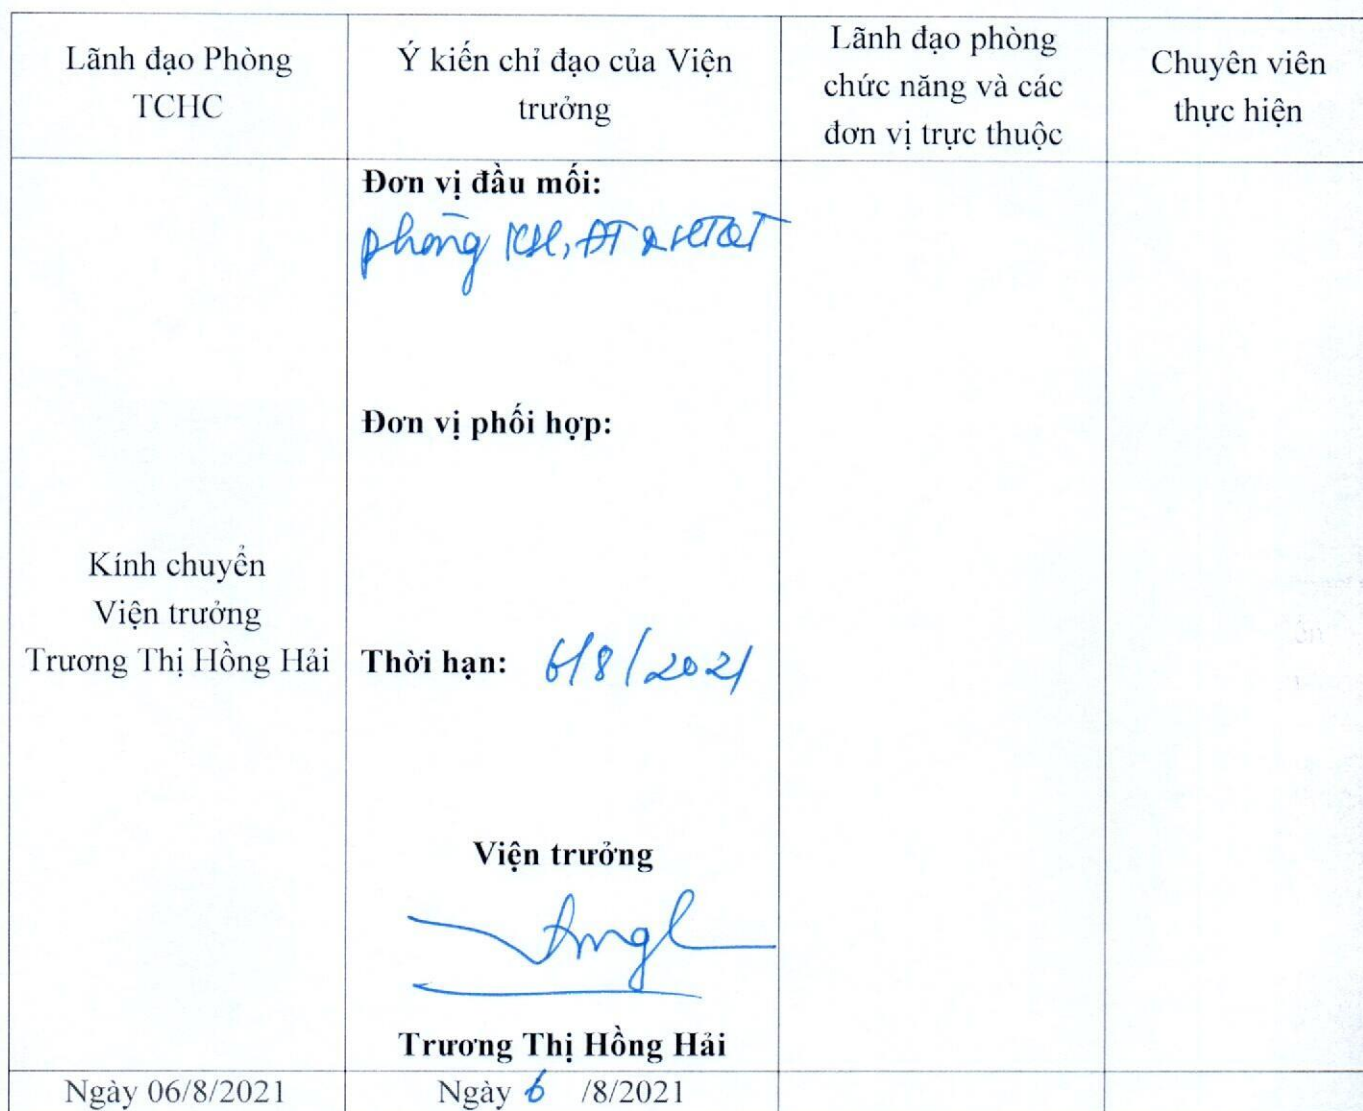 Lãnh đạo Phòng
TCHC
Ý kiến chỉ đạo của Viện
trưởng
Lãnh đạo phòng
chức năng và các
đơn vị trực thuộc
Chuyên viên
thực hiện
Kính chuyển
Viện trưởng
Trương Thị Hồng Hải
Đơn vị đầu mối:
phòng KH, ĐT & HTQT
Đơn vị phối hợp:
Thời hạn: 6/8/2021
Viện trưởng
Trương Thị Hồng Hải
Ngày 06/8/2021
Ngày 6 /8/2021